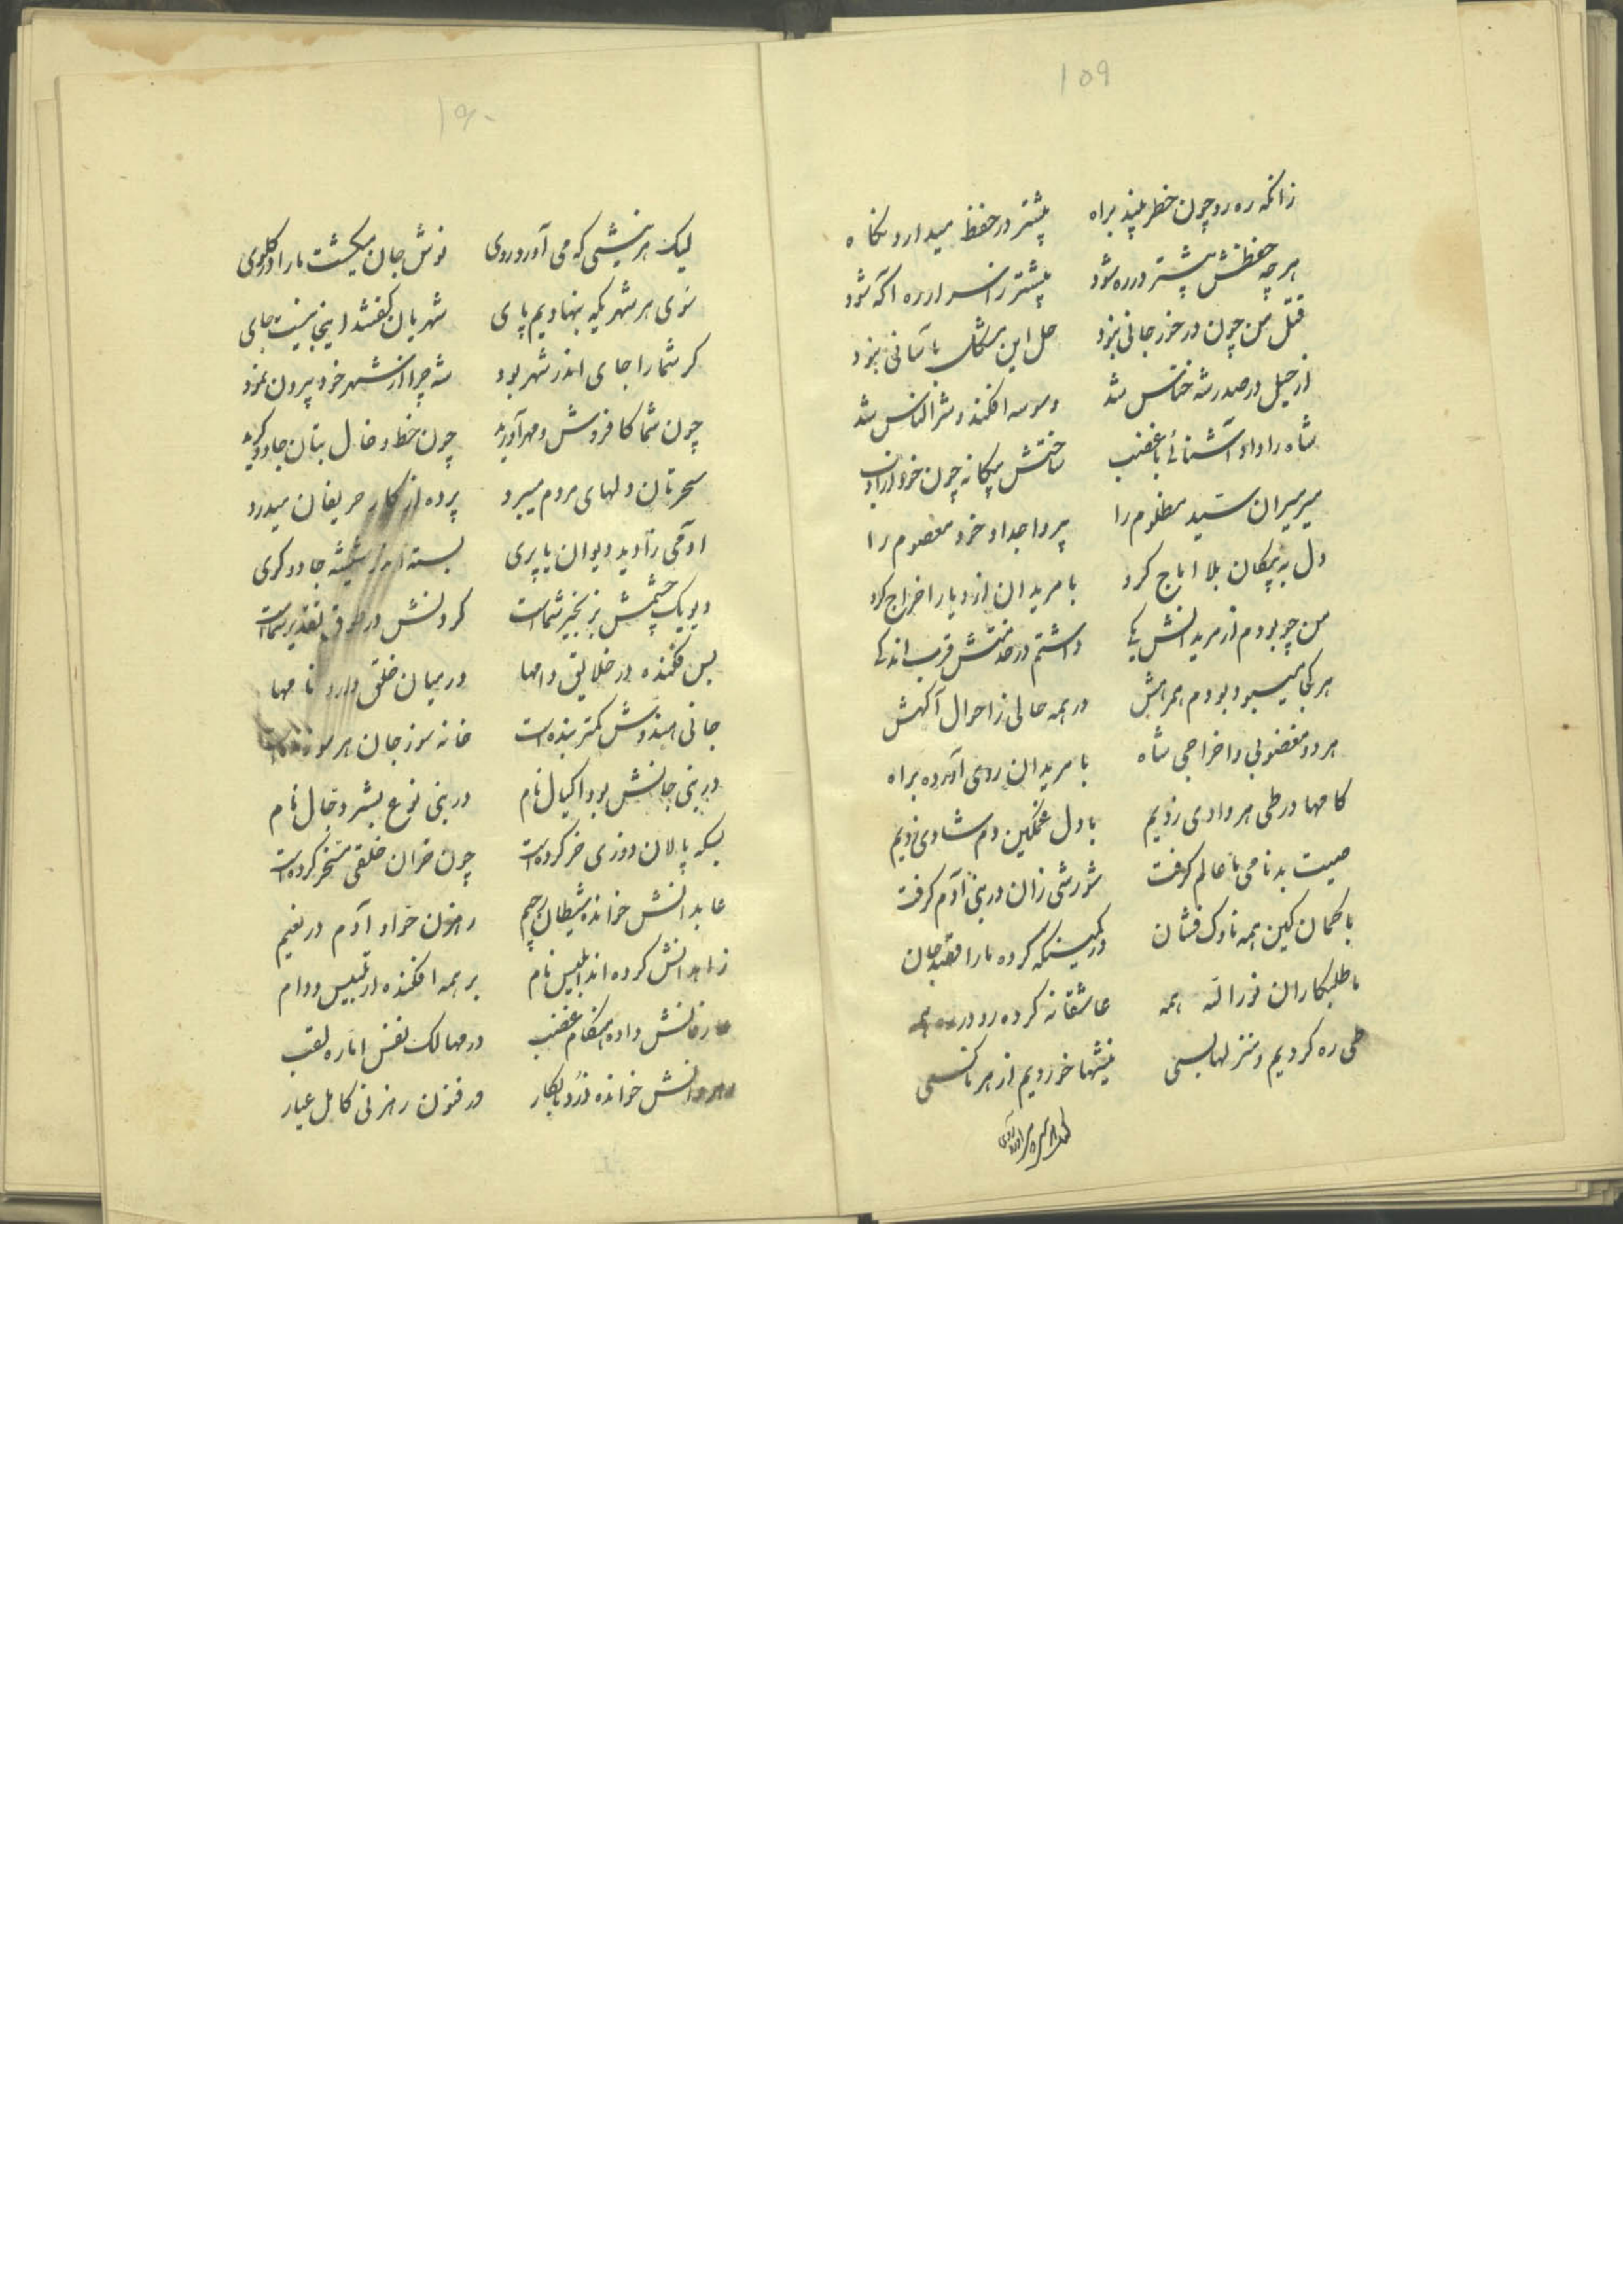 ۱۵۹
زانکه ره رو چون خطر بیند براه بیشتر در حفظ میدارد نکاه
هر چه حفظش بیشتر در ره شود بیشتر ز اسرار ره اکه شود
قتل من چون در خور جانی نبود حل این مشکل باسانی نبود
از حیل در صدر شه خناس شد وسوسه افکند و شر الناس شد
شاه را داد آشنائی با غضب ساختش بیکانه چون خود از ادب
میر میران سید مظلوم را پیر و اجداد خود معصوم را
دل به پیکان بلا اماج کرد با مریدان از دیار اخراج کرد
من چو بودم از مریدانش یکی داشتم در خدمتش قرب اندکی
هر کجا میبود بودم همرهش در همه حالی ز احوال آکهش
هر دو مغضوبی و اخراجی شاه با مریدان روی آورده براه
کامها در طی هر وادی زدیم با دل غمکین دم شادی زدیم
صیت بدنامی ما عالم کرفت شورشی زان در بنی آدم کرفت
با کمان کین همه ناوک فشان در کمینکه کرده ما را قصد جان
ما طلبکاران نور الله همه عاشقانه کرده رو در ره همه
طی ره کردیم و منزلها بسی نیشها خوردیم از هر ناکسی
۱۶۰
لیک هر نیشی که می آورد روی نوش جان میکشت ما را در کلوی
سوی هر شهریکه بنهادیم پای شهریان کفتند اینجا نیست جای
کر شما را جای اندر شهر بود شه چرا از شهر خود بیرون نمود
چون شما کافروش و مهرآورید چون خط و خال بتان جادوکرید
سحرتان دلهای مردم میبرد پرده از کار حریفان میدرد
آدمی زادید دیوان یا پری بسته اند از شیشه جادوکری
دیو یک چشمش بزنجیر شماست کردنش در طوق تقدیر شماست
بس فکنده در خلایق دامها در میان خلق دارد نامها
جانی هندوش کمتر بنده است خانه سوز جان هر سو
در بنی جانش بود اکیال نام در بنی نوع بشر دجال نام
بسکه پالان دوزی خر کرده است چون خران خلقی مسخر کرده است
عابدانش خوانده شیطان رجیم رهزن حوا و آدم در نعیم
زاهدانش کرده اند ابلیس نام بر همه افکنده از تلبیس دام
عارفانش داده هنکام غضب در مهالک نفس اماره لقب
رهروانش خوانده دزد نابکار در فنون رهزنی کامل عیار